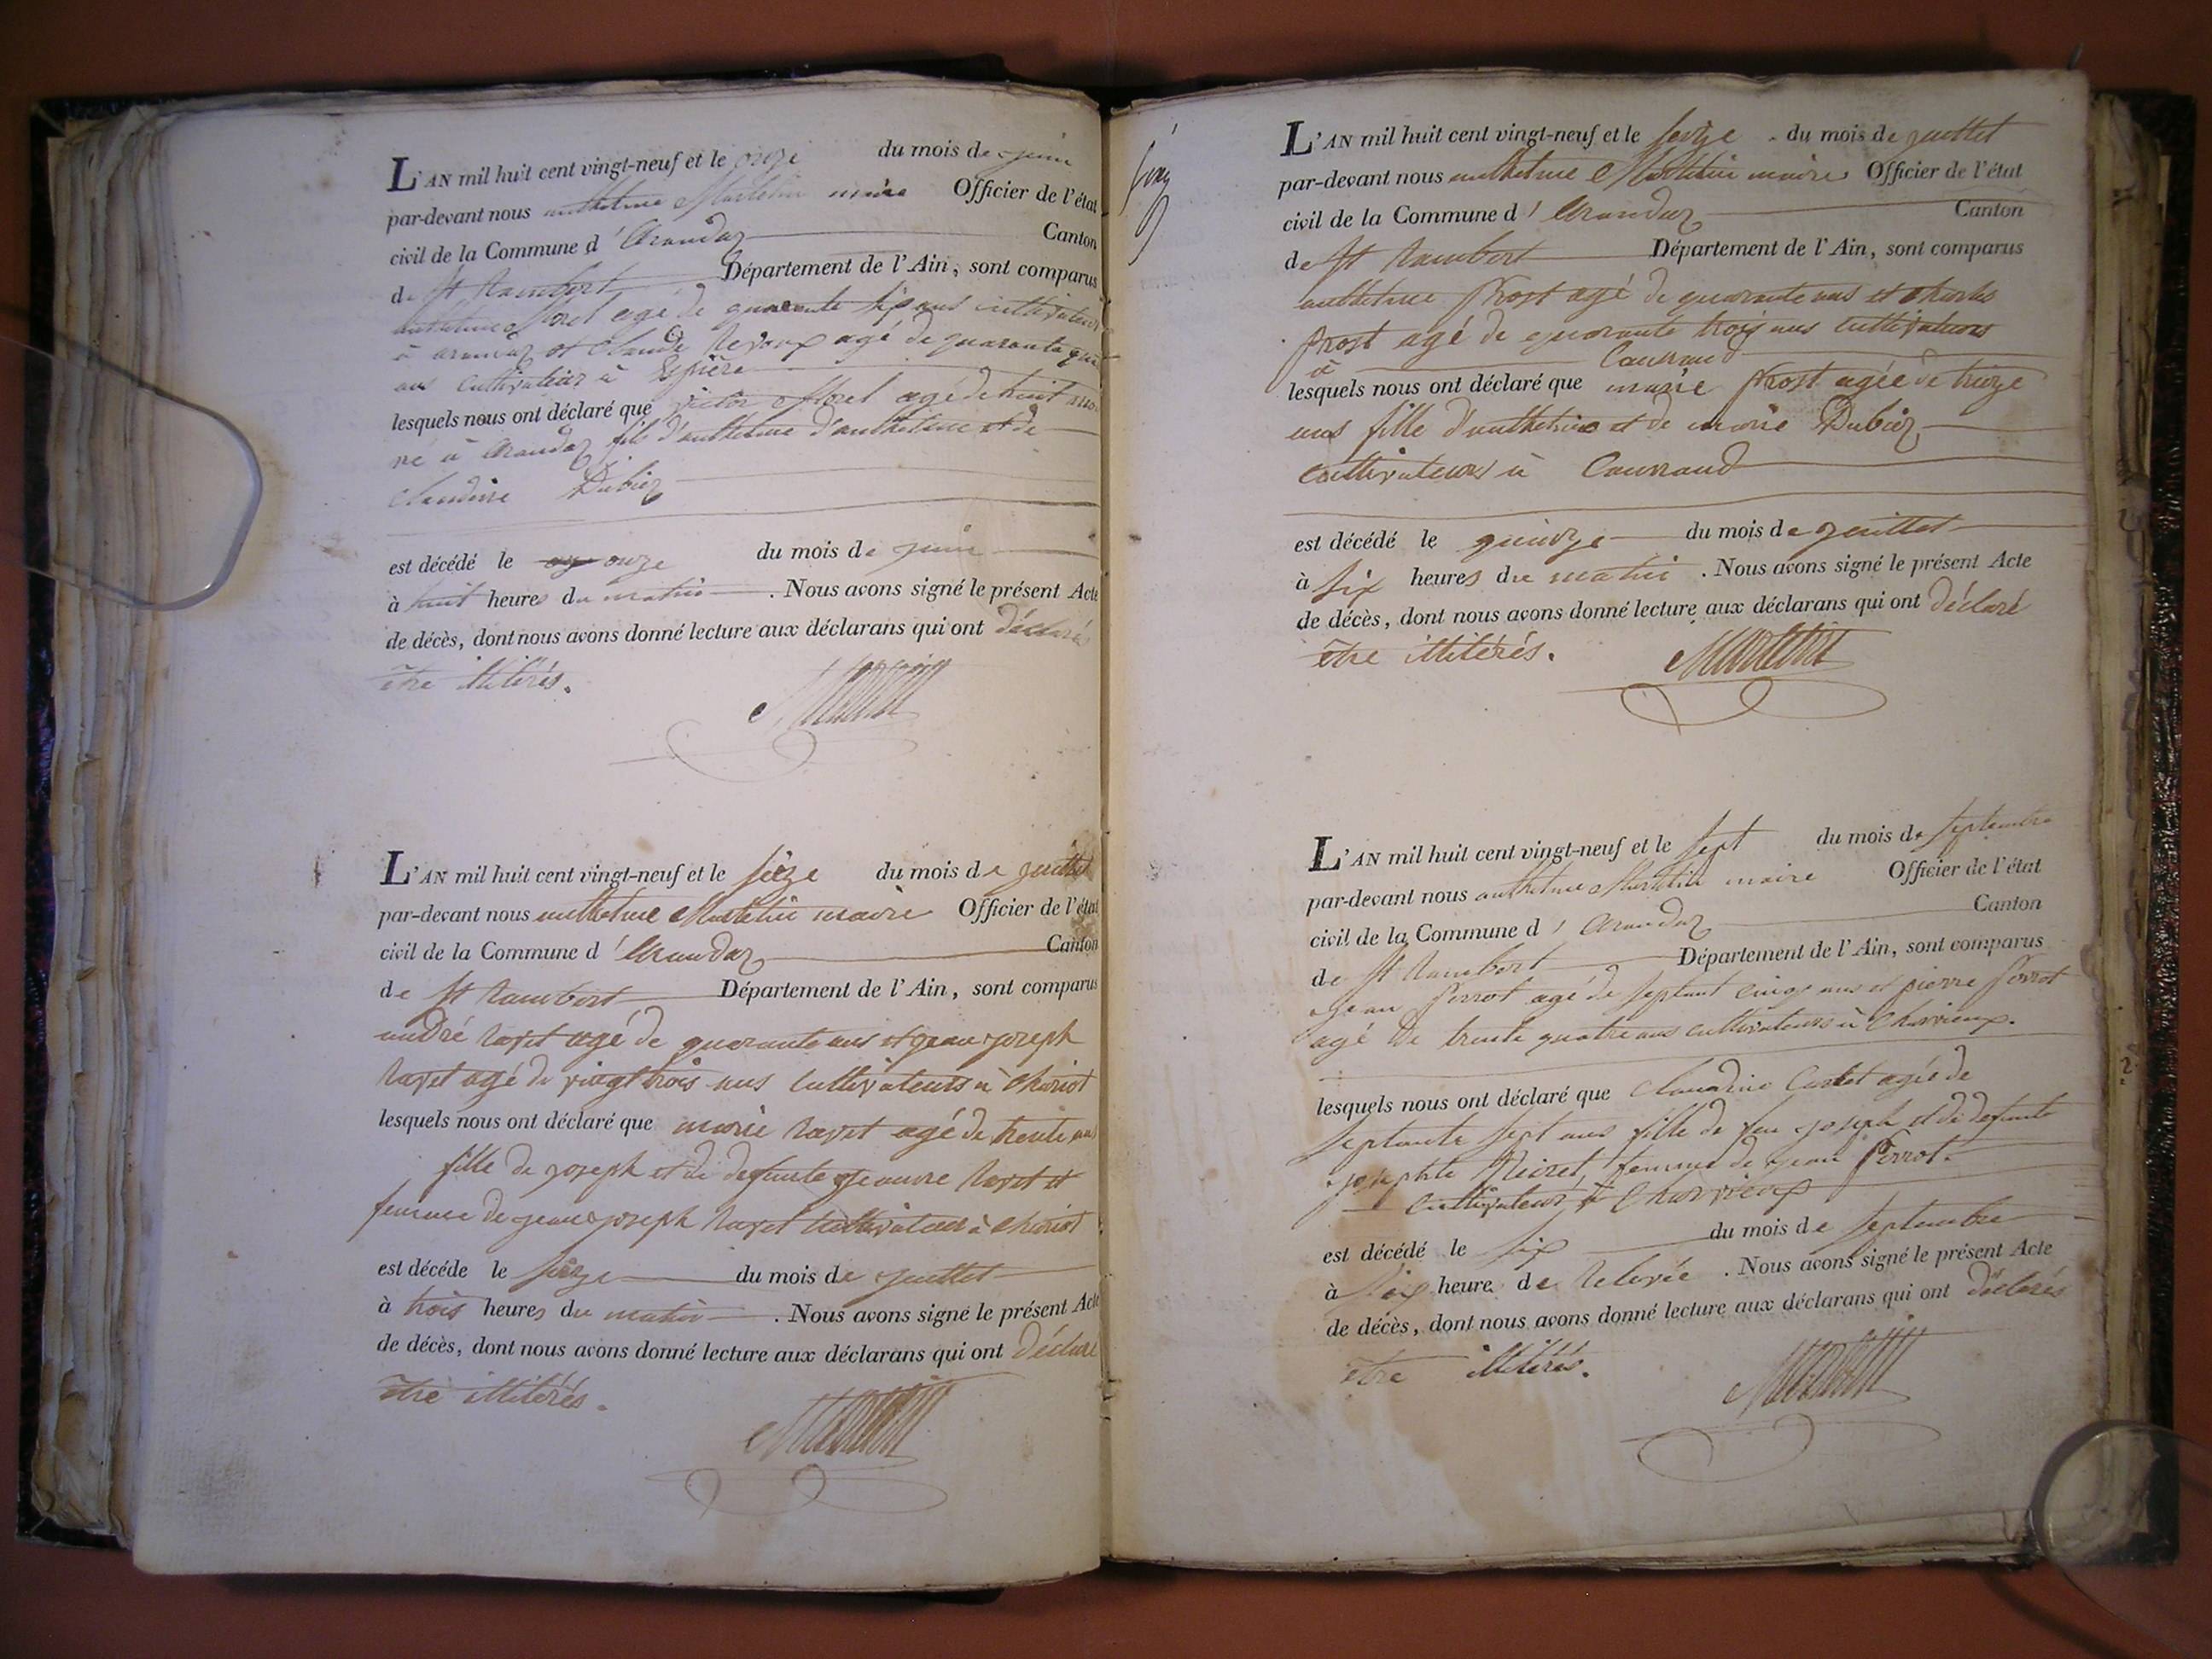 L'AN mil huit cent vingt-neuf et le onze du mois de juin
par-devant nous anthelme Martelin maire Officier de l'état
civil de la Commune d'Arandaz Canton
de St Rambert Département de l'Ain, sont comparus
anthelme Morel agé de quarante six ans cultivateur
à arandaz et Claude agé de quarante
ans cultivateur à
lesquels nous ont déclaré que victor Morel agé de huit
né à Arandaz fils d'anthelme d'anthelme et de
claudine Dubiez
est décédé le onze du mois de juin
à huit heures du matin . Nous avons signé le présent Acte
de décès, dont nous avons donné lecture aux déclarans qui ont déclarés
être illitérés.
Martelin
L'AN mil huit cent vingt-neuf et le sièze du mois de juillet
par-devant nous anthelme Martelin maire Officier de l'état
civil de la Commune d'Arandaz Canton
de St Rambert Département de l'Ain, sont comparus
andré ravet agé de quarante ans et jean joseph
ravet agé de vingt trois ans cultivateurs à
lesquels nous ont déclaré que marie ravet agé de trente ans
fille de joseph et de defunte jeanne ravet et
femme de jean joseph ravet cultivateur à
est décéde le sièze du mois de juillet
à trois heures du matin . Nous avons signé le présent Acte
de décès, dont nous avons donné lecture aux déclarans qui ont déclaré
être illitérés.
Martelin
L'AN mil huit cent vingt-neuf et le seize du mois de juillet
par-devant nous anthelme Martelin maire Officier de l'état
civil de la Commune d'Arandaz Canton
de St Rambert Département de l'Ain, sont comparus
anthelme Prost agé de quarante ans et charles
Prost agé de quarante trois ans cultivateurs
à
lesquels nous ont déclaré que marie Prost agée de treize
ans fille d'anthelme et de marie Dubiez
cultivateurs à
est décédé le quinze du mois de juillet
à six heures du matin . Nous avons signé le présent Acte
de décès, dont nous avons donné lecture aux déclarans qui ont déclaré
être illitérés.
Martelin
L'AN mil huit cent vingt-neuf et le sept du mois de septembre
par-devant nous anthelme Martelin maire Officier de l'état
civil de la Commune d'Arandaz Canton
de St Rambert Département de l'Ain, sont comparus
jean Perrot agé de septant cinq ans et pierre Perrot
agé de trente quatre ans cultivateurs à Charvieux.
lesquels nous ont déclaré que claudine agée de
septante sept ans fille de feu joseph et de defunte
josephte femme de jean Perrot.
cultivateur à Charvieux
est décédé le six du mois de septembre
à six heure de relevée . Nous avons signé le présent Acte
de décès, dont nous avons donné lecture aux déclarans qui ont déclarés
etre illitérés.
Martelin